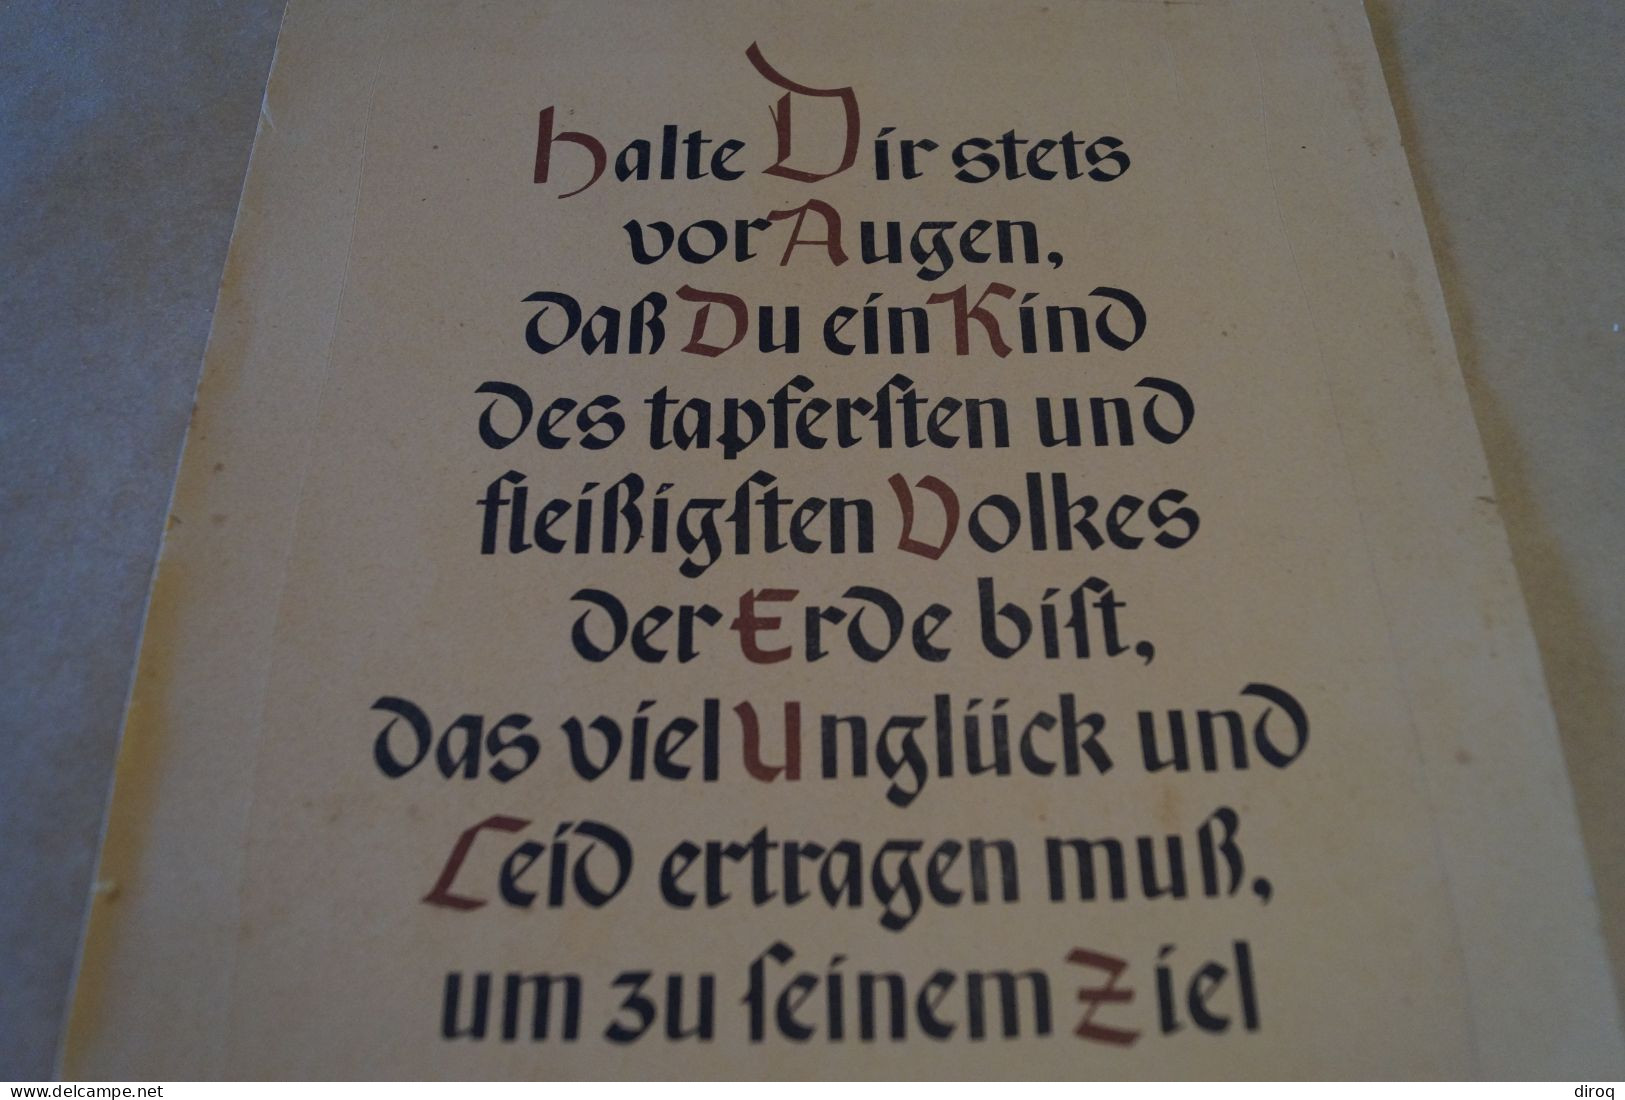 Halte Dir stets
vor Augen,
daß Du ein Kind
des tapferſten und
fleißigſten Volkes
der Erde biſt,
das viel Unglück und
Leid ertragen muß,
um zu ſeinem Ziel
www.delcampe.net
diroq